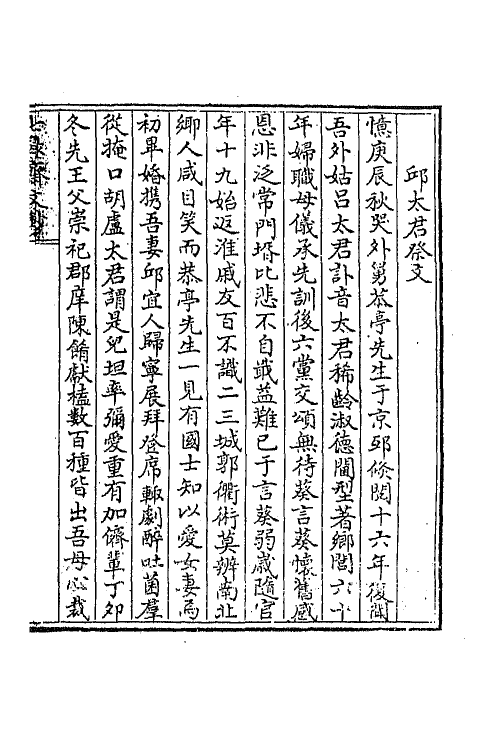 邱太君祭文
憶庚辰秋哭外舅恭亭先生于京邸倏閱十六年復聞
吾外姑呂太君訃音太君稀齡淑德閫型著鄉閭六十
年婦職母儀承先訓後六黨交頌無待葵言葵懷舊感
恩非泛常門壻比悲不自戢益難已于言葵弱歲隨宦
年十九始返淮戚友百不識二三城郭衢術莫辨南北
鄉人咸目笑而恭亭先生一見有國士知以愛女妻焉
初畢婚携吾妻邱宜人歸寧展拜登席輙劇醉吐茵羣
從掩口胡盧太君謂是兒坦率彌愛重有加儕輩丁卯
冬先王父崇祀郡庠陳餚獻榼數百種皆出吾母心裁